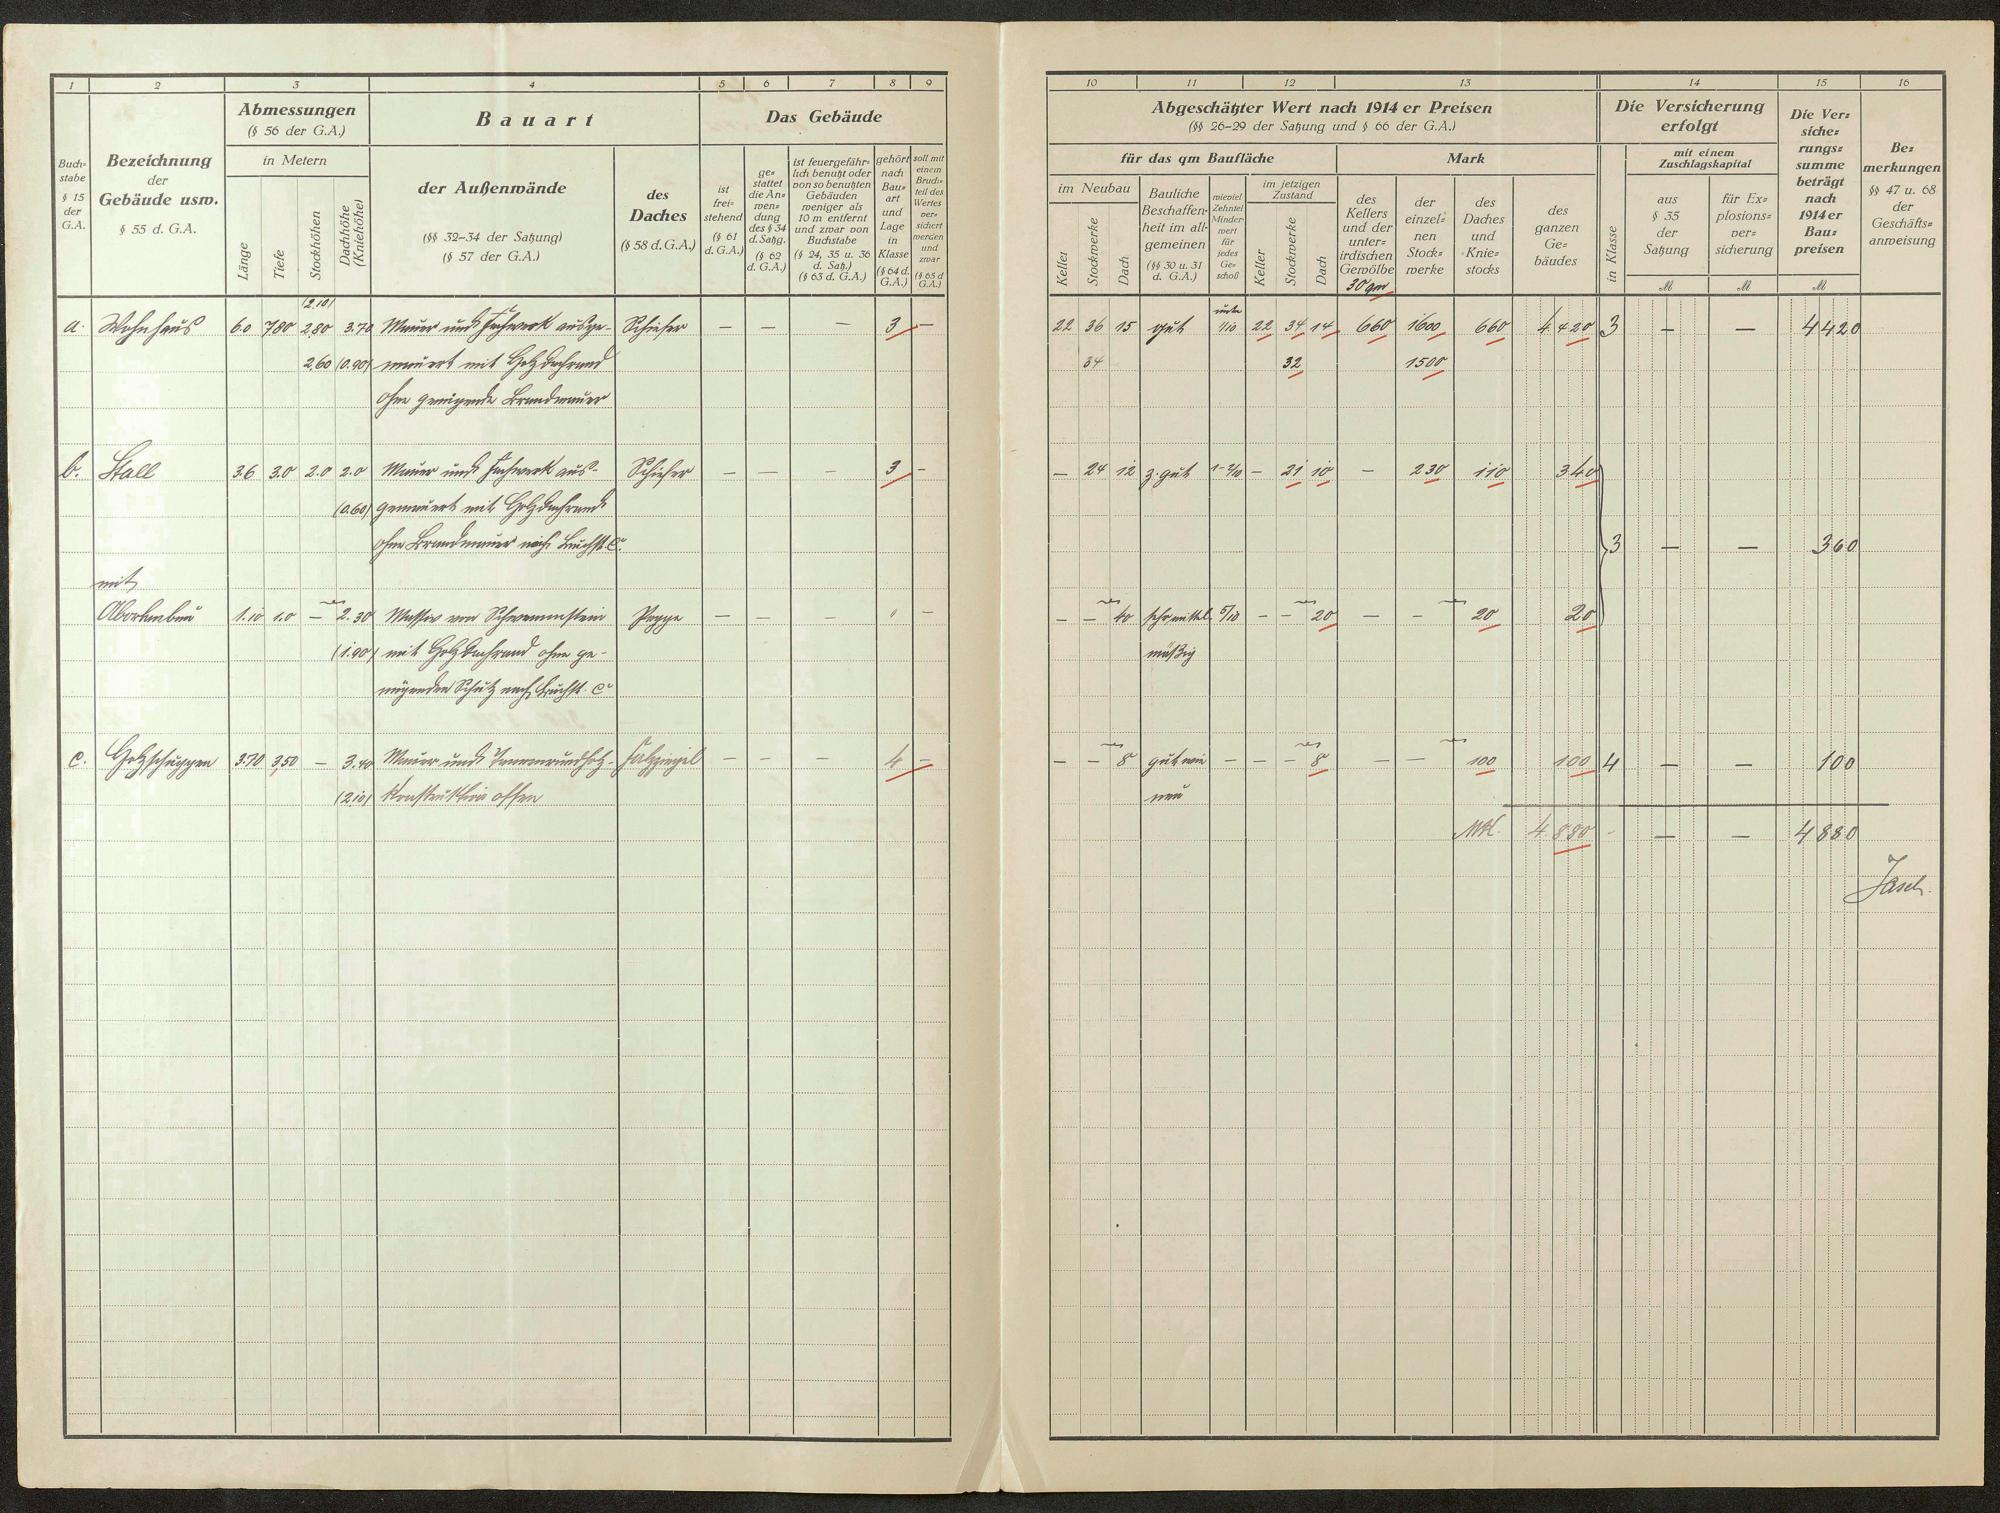 1 2 3 4 5 6 7 8 9
Buch=
stabe
§ 15
der
G.A.
Bezeichnung
der
Gebäude usw.
§ 55 d. G.A.
Abmessungen
(§ 56 der G.A.)
in Metern
Länge
Tiefe
Stockhöhen
Dachhöhe
(Kniehöhe)
Bauart
der Außenwände
(§§ 32-34 der Satzung)
(§ 57 der G.A.)
des
Daches
(§ 58 d. G.A.)
Das Gebäude
ist
frei=
stehend
(§ 61
d. G.A.)
ge=
stattet
die An=
wen=
dung
des § 34
d. Satzg.
(§ 62
d. G.A.)
ist feuergefähr=
lich benutzt oder
von so benutzten
Gebäuden
weniger als
10 m entfernt
und zwar von
Buchstabe
(§ 24, 35 u. 36
d. Satz.)
(§ 63 d. G.A.)
gehört
nach
Bau=
art
und
Lage
in
Klasse
(§ 64 d.
G.A.)
soll mit
einem
Bruch=
teil des
Wertes
ver=
sichert
werden
und
zwar
(§ 65 d
G.A.)
(2,10)
a. Wohnhaus 6.0 7.80 2.80 3.70 Mauer und Fachwerk ausge- Schiefer — — — 3 —
2.60 (0.90) mauert mit Holzdachrand
ohne genügende Brandmauer
b. Stall 3.6 3.0 2.0 2.0 Mauer und Fachwerk aus- Schiefer — — — 3 —
(0.60) gemauert mit Holzdachrand
ohne Brandmauer nach Buchst. C.
mit
Abortanbau 1.10 1.0 — 2.30 Massiv von Schwemmstein Pappe — — — " —
(1.90) mit Holzdachrand ohne ge-
nügenden Schutz nach Buchst. C
c. Holzschuppen 3.70 3.50 — 3.40 Mauer und Tannenrundholz- Falzziegel — — — 4 —
(2.10) Konstruktion offen
10 11 12 13 14 15 16
Abgeschätzter Wert nach 1914 er Preisen
(§§ 26-29 der Satzung und § 66 der G.A.)
für das qm Baufläche
im Neubau
Keller
Stockwerke
Dach
Bauliche
Beschaffen=
heit im all-
gemeinen
(§§ 30 u. 31
d. G.A.)
wieviel
Zehntel
Minder=
wert
für
jedes
Ge=
schoß
im jetzigen
Zustand
Keller
Stockwerke
Dach
Mark
des
Kellers
und der
unter=
irdischen
Gewölbe
30 qm
der
einzel=
nen
Stock=
werke
des
Daches
und
Knie=
stocks
des
ganzen
Ge=
bäudes
Die Versicherung
erfolgt
in Klasse
mit einem
Zuschlagskapital
aus
§ 35
der
Satzung
für Ex=
plosions=
ver=
sicherung
Die Ver=
siche=
rungs=
summe
beträgt
nach
1914 er
Bau=
preisen
M M M
Be=
merkungen
§§ 47 u. 68
der
Geschäfts=
anweisung
unter
22 36 15 gut 1/10 22 34 14 660 1600 660 4420 3 — — 4420
34 32 1500
— 24 12 z. gut 1-2/10 — 21 10 — 230 110 340
3 — — 360
— — 40 sehr mittel 5/10 — — 20 — — 20 20
mäßig
— — 8 gut wie — — — 8 — — 100 100 4 — — 100
neu
Mk. 4880 - — — 4880
Jasch.